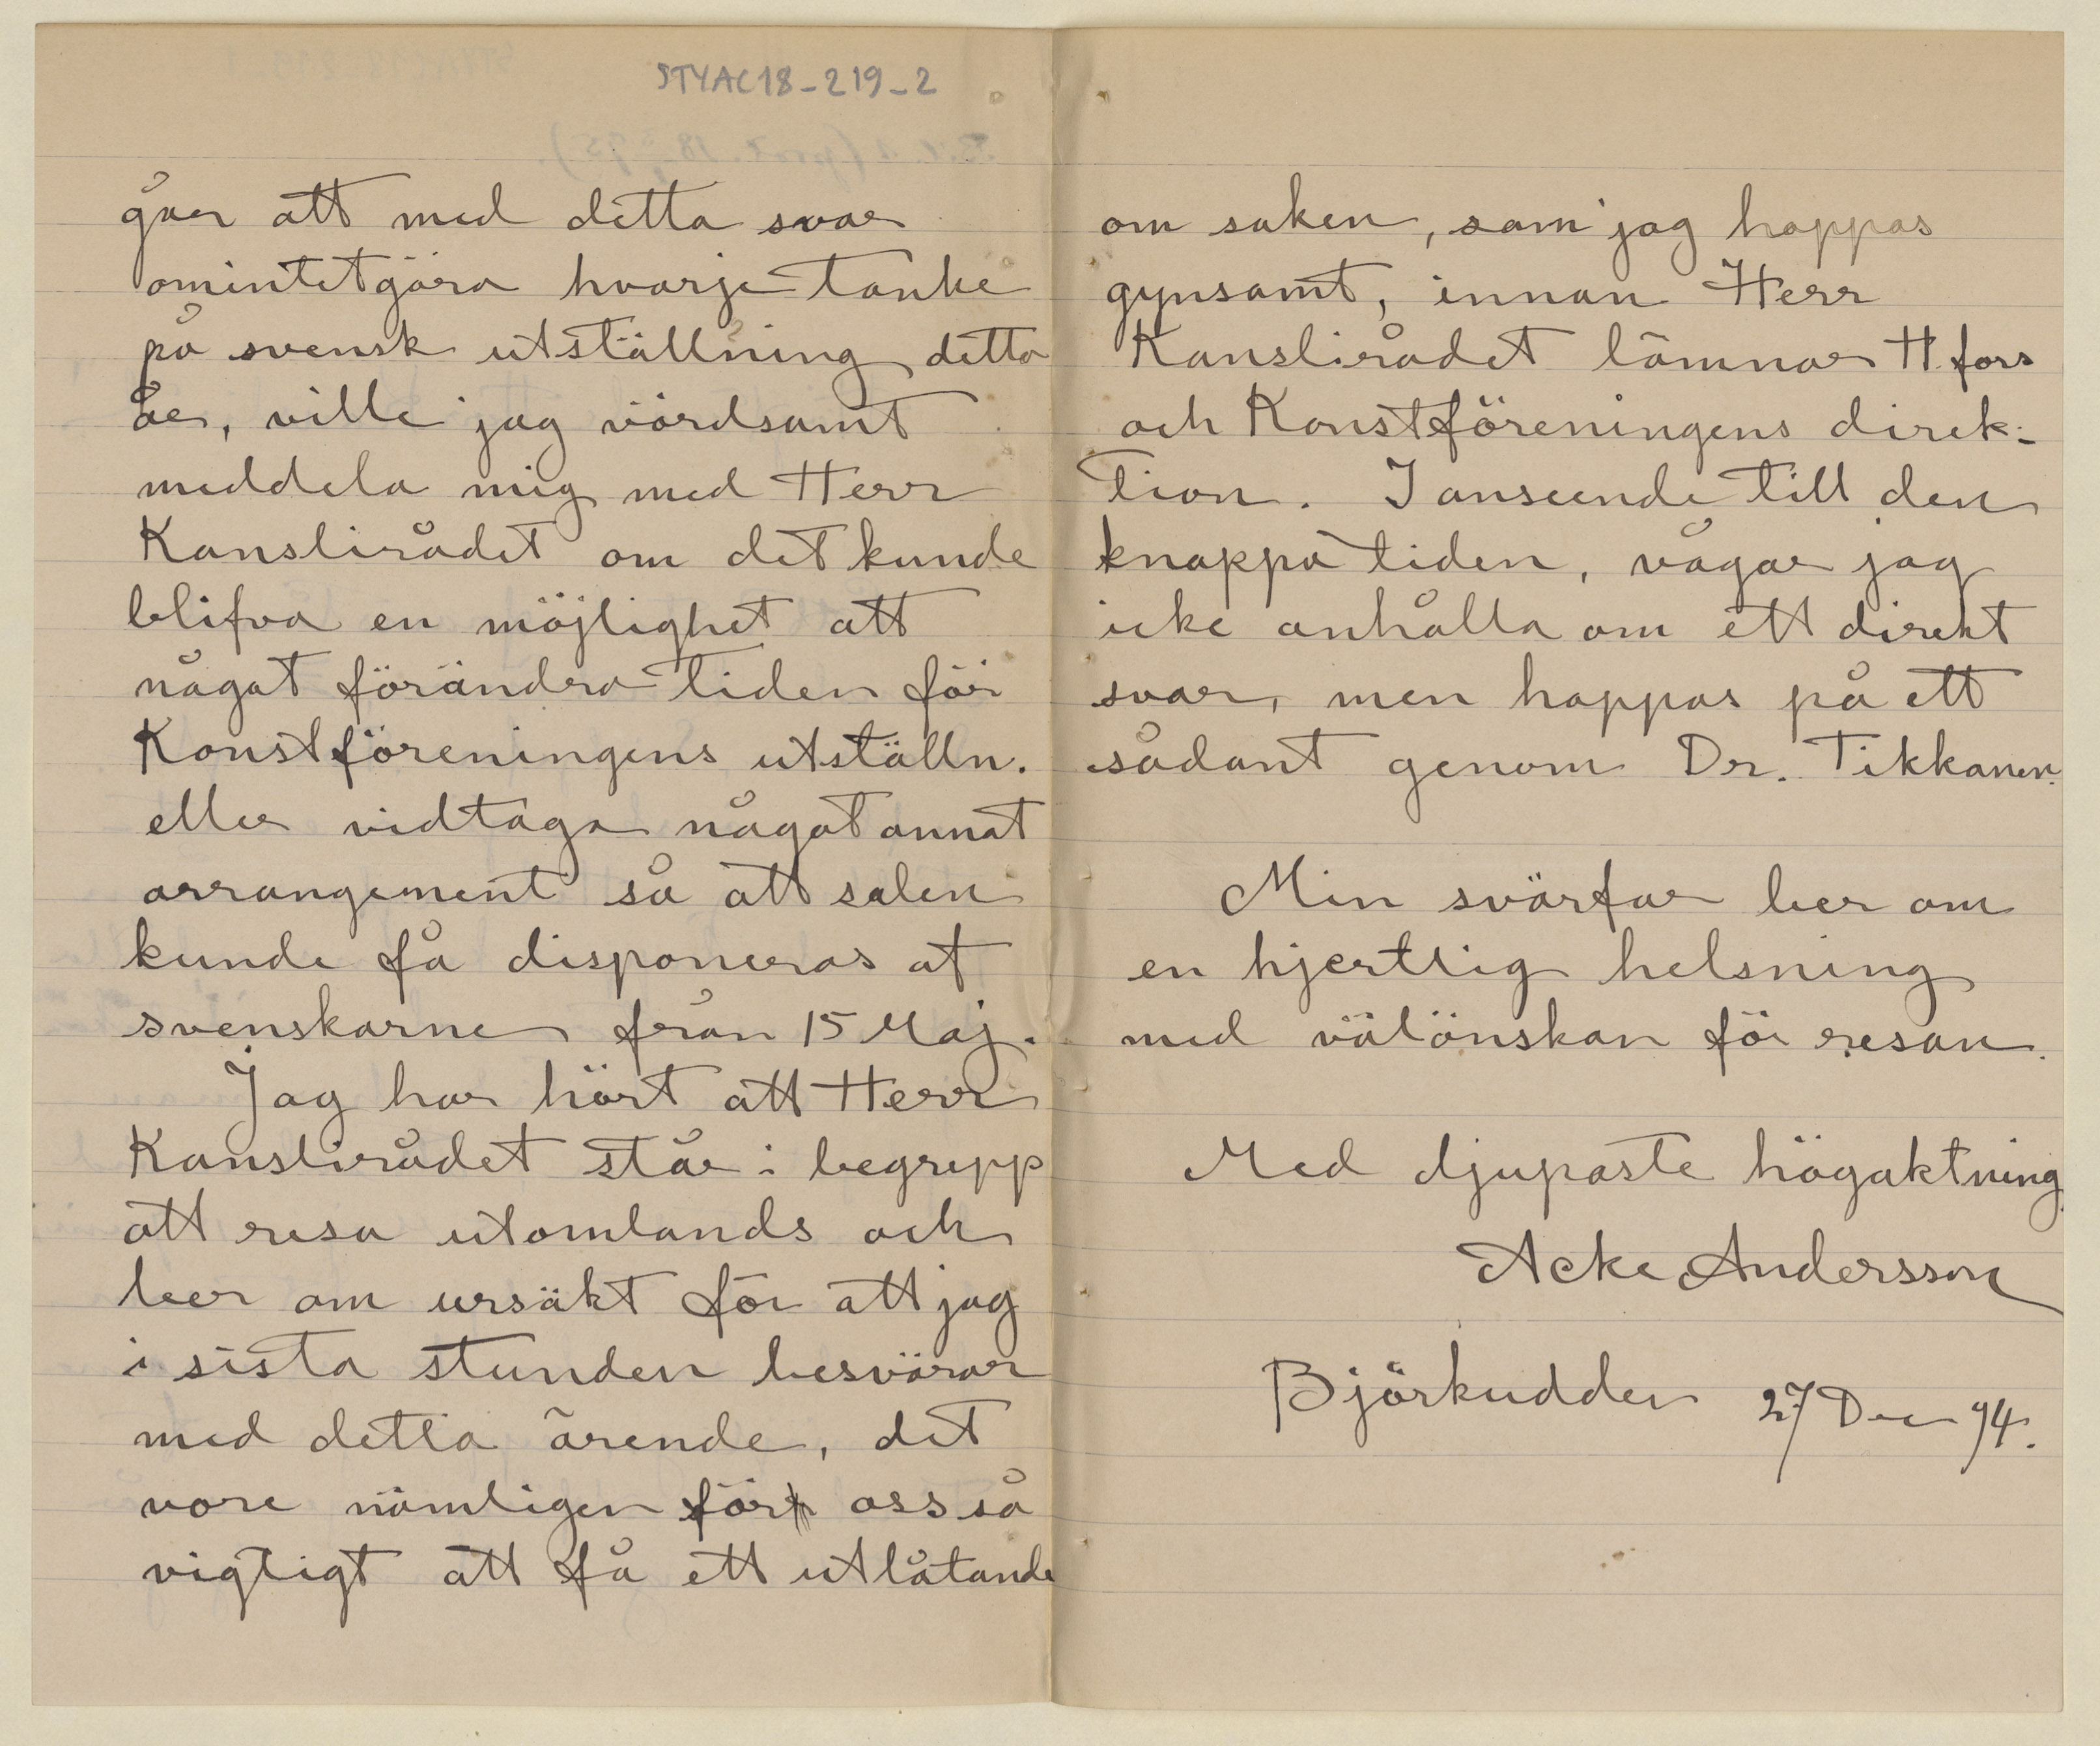 STYAC18-219-2
går att med detta svar
omintetgöra hvarje tanke
på svensk utställning detta
år, ville jag vördsamt
meddela mig med Herr
Kanslirådet om det kunde
blifva en möjlighet att
något förändra tiden för
Konstföreningens utställn.
eller vidtaga något annat
arrangement så att salen
kunde få disponeras af
svenskarne från 15 Maj.
Jag har hört att Herr
Kanslirådet står i begrepp
att resa utomlands och
ber om ursäkt för att jag
i sista stunden besvärar
med detta ärende, det
vore nämligen för oss så
vigtigt att få ett utlåtande
om saken, som jag hoppas
gynsamt, innan Herr
Kanslirådet lämnar H.fors
och Konstföreningens direk-
tion. I anseende till den
knappa tiden, vågar jag
icke anhålla om ett direkt
svar, men hoppas på ett
sådant genom Dr. Tikkanen.
Min svärfar ber om
en hjertlig helsning
med välönskan för resan.
Med djupaste högaktning
Acke Andersson
Björkudden 27 Dec 94.